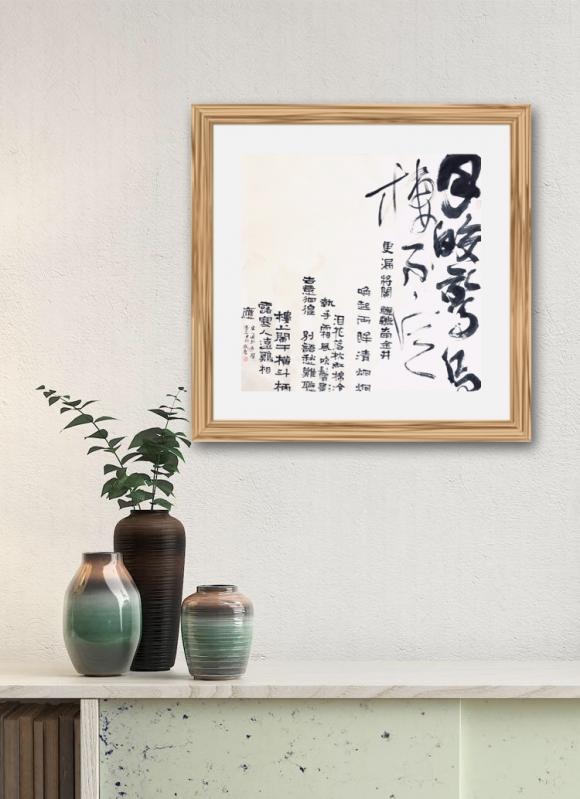 月皎驚烏
棲不定
更漏將闌 轣轆牽金井
喚起兩眸清炯炯
泪花落枕紅棉冷
執手霜風吹鬢影
去意徊徨 別語愁難聽
樓上闌干橫斗柄
露寒人遠鷄相
應